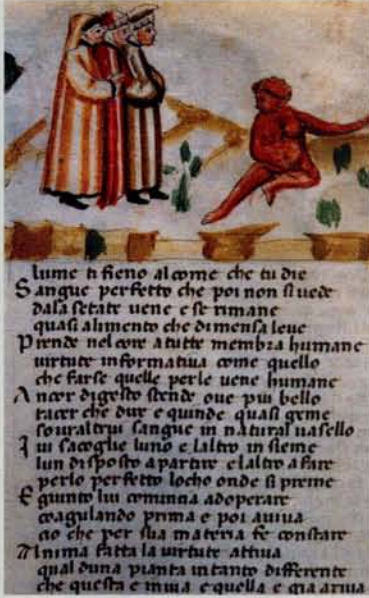 lume ti fieno al come che tu die
Sangue perfetto che poi non si vede
dala setate uene e se rimane
quasi alimento che di mensa leue
Prende nel core a tutte membra humane
uirtute informatiua come quello
che farse quelle per le uene humane
Ancor digesto scende oue piu bello
tacer che dire e quinde quasi geme
souraltrui sangue in natural uasello
Iui sacoglie luno e laltro insieme
lun disposto a partire e laltro a fare
perlo perfetto locho onde si preme
E giunto lui comincia adoperare
coagulando prima e poi auiua
cio che per sua materia fe constare
Anima fatta la uirtute attiua
qual duna pianta in tanto differente
che questa e inuia e quella e gia ariua